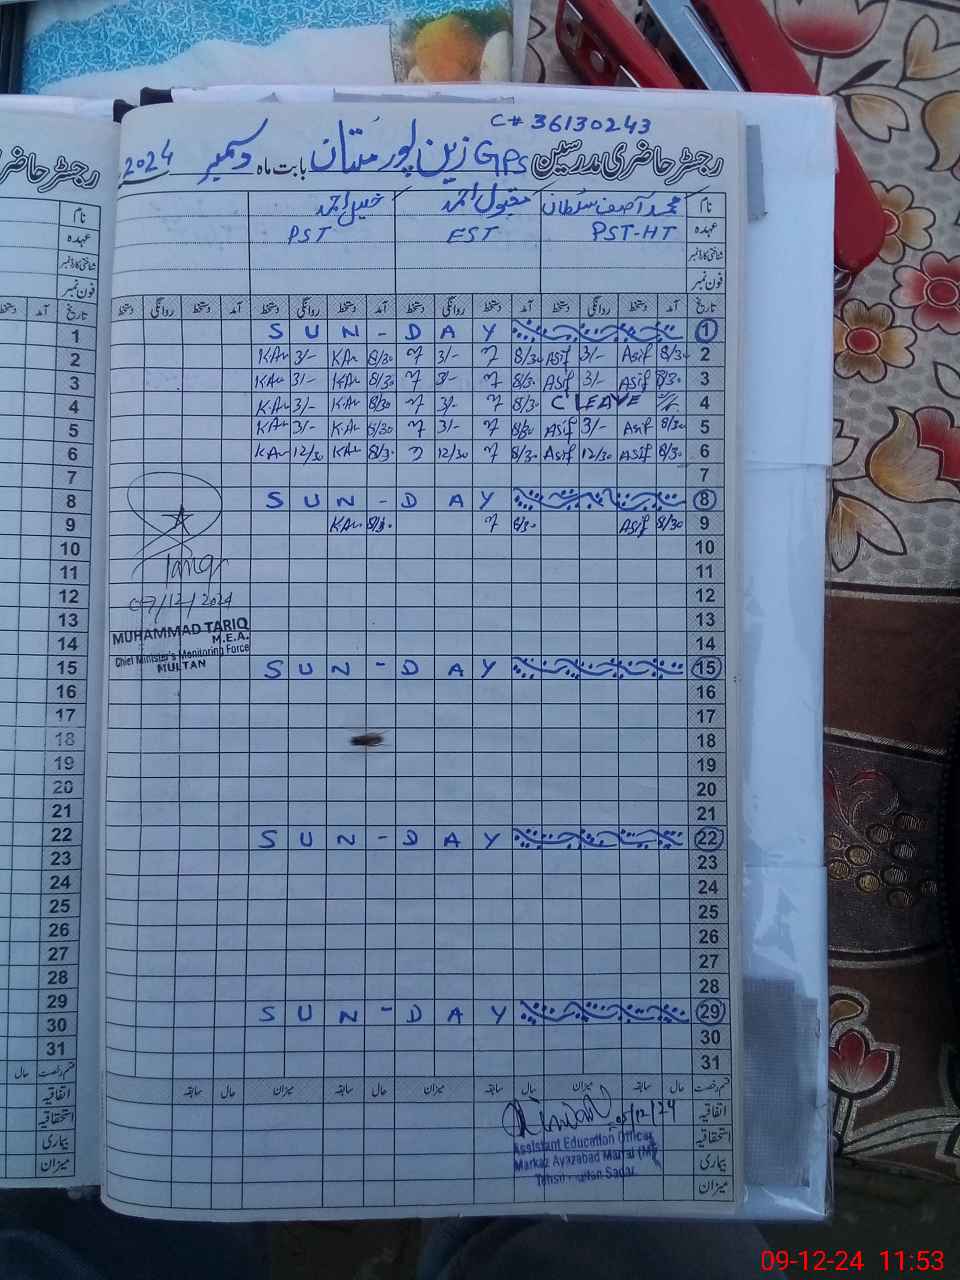 C# 36130243
رجسٹر حاضری مدرسین GPS زین پور ملتان بابت ماہ دسمبر 2024
نام محمد آصف سلطان مقبول احمد خلیل احمد
عہدہ PST-HT EST PST
شناختی کارڈ نمبر
فون نمبر
تاریخ آمد دستخط روانگی دستخط آمد دستخط روانگی دستخط آمد دستخط روانگی دستخط آمد دستخط روانگی دستخط
1 SUN-DAY
2 8/30 Asif 3/- Asif 8/30 3/- 8/30 KAr 3/- KAr
3 8/30 Asif 3/- Asif 8/30 3/- 8/30 KAr 3/- KAr
4 C LEAVE 8/30 3/- 8/30 KAr 3/- KAr
5 8/30 Asif 3/- Asif 8/30 3/- 8/30 KAr 3/- KAr
6 8/30 Asif 12/30 Asif 8/30 12/30 8/30 KAr 12/30 KAr
7
8 SUN-DAY
9 8/30 Asif 8/30 8/30 KAr
10
11
12
13
14
15 SUN-DAY
16
17
18
19
20
21
22 SUN-DAY
23
24
25
26
27
28
29 SUN-DAY
30
31
Tariq
07/12/2024
MUHAMMAD TARIQ
M.E.A.
Chief Minister's Monitoring Force
MULTAN
قسم رخصت حال سابقہ میزان حال سابقہ میزان حال سابقہ میزان حال سابقہ
اتفاقیہ
استحقاقیہ
بیماری
میزان
05/12/24
Assistant Education Officer
Markaz Ayazabad Marral (M)
Tehsil Multan Sadar
رجسٹر حاضری
نام
عہدہ
شناختی کارڈ نمبر
فون نمبر
تاریخ آمد دستخط
1
2
3
4
5
6
7
8
9
10
11
12
13
14
15
16
17
18
19
20
21
22
23
24
25
26
27
28
29
30
31
قسم رخصت حال
اتفاقیہ
استحقاقیہ
بیماری
میزان
09-12-24 11:53